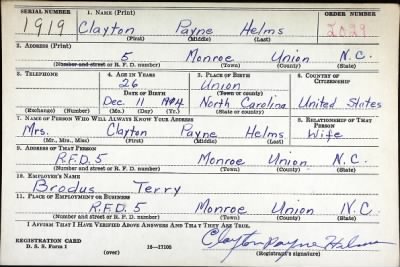 SERIAL NUMBER 1. NAME (Print) ORDER NUMBER
1919 Clayton Payne Helms 2029
(First) (Middle) (Last)
2. ADDRESS (Print)
5 Monroe Union N.C.
(Number and street or R. F. D. number) (Town) (County) (State)
3. TELEPHONE 4. AGE IN YEARS 5. PLACE OF BIRTH 6. COUNTRY OF CITIZENSHIP
26 Union
DATE OF BIRTH (Town or county)
Dec. 11 1914 North Carolina United States
(Exchange) (Number) (Mo.) (Day) (Yr.) (State or country)
7. NAME OF PERSON WHO WILL ALWAYS KNOW YOUR ADDRESS 8. RELATIONSHIP OF THAT PERSON
Mrs. Clayton Payne Helms Wife
(Mr., Mrs., Miss) (First) (Middle) (Last)
9. ADDRESS OF THAT PERSON
R.F.D. 5 Monroe Union N.C.
(Number and street or R. F. D. number) (Town) (County) (State)
10. EMPLOYER'S NAME
Brodus Terry
11. PLACE OF EMPLOYMENT OR BUSINESS
R.F.D. 5 Monroe Union N.C.
(Number and street or R. F. D. number) (Town) (County) (State)
I AFFIRM THAT I HAVE VERIFIED ABOVE ANSWERS AND THAT THEY ARE TRUE.
REGISTRATION CARD
D. S. S. Form 1 (over) 16—17105 Clayton Payne Helms
(Registrant's signature)